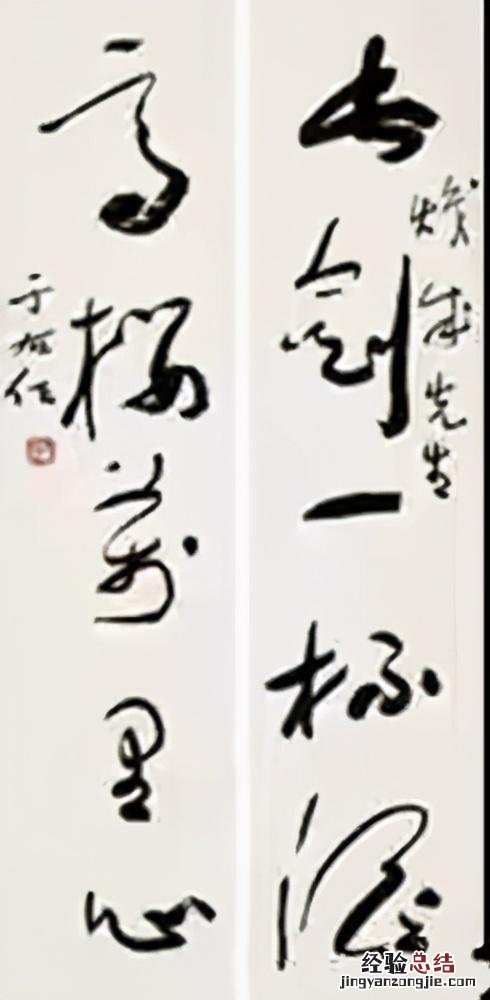 長劍一杯酒
成先生
高樓萬里心
于右任
经验总结
jingyanzongjie.com